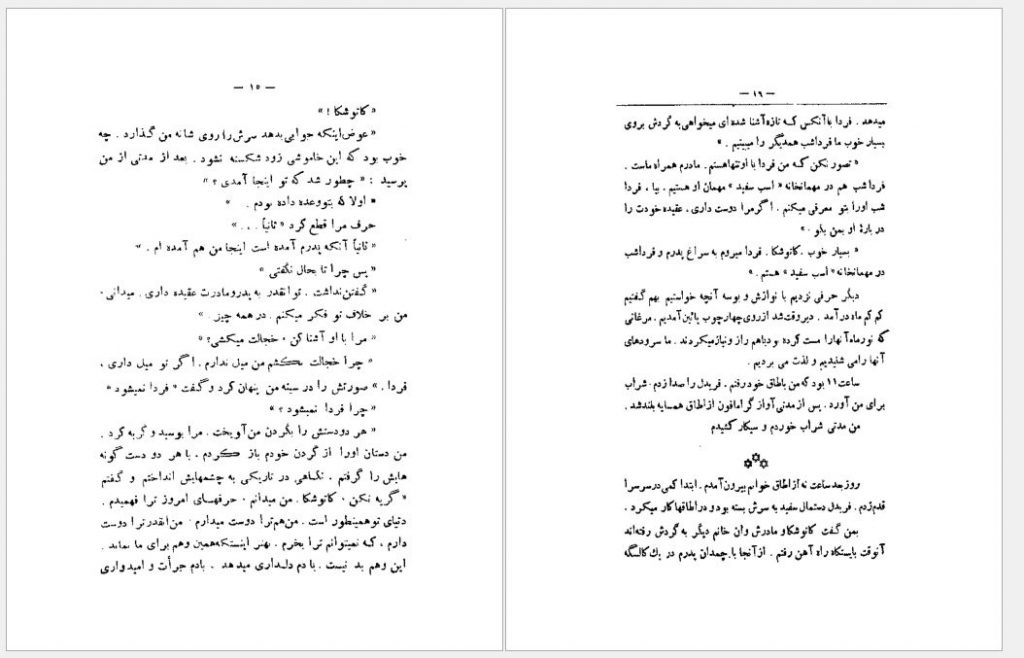 — ۱۵ —
« کاتوشکا ! »
« عوض اینکه جوابی بدهد سرش را روی شانه من گذارد . چه
خوب بود که این خاموشی زود شکسته نشود . بعد از مدتی از من
پرسید : « چطور شد که تو اینجا آمدی ؟ »
« اولا که بتو وعده داده بودم . »
حرف مرا قطع کرد « ثانیاً . . . »
« ثانیاً آنکه پدرم آمده است اینجا من هم آمده ام . »
« پس چرا تا بحال نگفتی »
« گفتن نداشت . تو انقدر به پدر و مادرت عقیده داری . میدانی ·
من بر خلاف تو فکر میکنم . در همه چیز . »
« مرا با او آشنا کن · خجالت میکشی؟ »
« چرا خجالت بکشم من میل ندارم . اگر تو میل داری ،
فردا . » صورتش را در سینه من پنهان کرد و گفت « فردا نمیشود »
« چرا فردا نمیشود ؟ »
« هر دو دستش را بگردن من آویخت . مرا بوسید و گریه کرد .
من دستان او را از گردن خودم باز کردم . با هر دو دست گونه
هایش را گرفتم . نگاهی در تاریکی به چشمهایش انداختم و گفتم
« گریه نکن · کاتوشکا . من میدانم · حرفهای امروز ترا فهمیدم .
دنیای تو همینطور است . من هم ترا دوست میدارم · من انقدر ترا دوست
دارم ، که نمیتوانم ترا بخرم . بهتر اینستکه همین وهم برای ما بماند .
این وهم بد نیست . بآدم دلداری میدهد . بآدم جرأت و امیدواری
— ۱۶ —
میدهد . فردا با آنکس که تازه آشنا شده ای میخواهی به گردش بروی
بسیار خوب ما فرداشب همدیگر را میبینیم . »
« تصور نکن که من فردا با او تنها هستم . مادرم همراه ماست .
فرداشب هم در مهمانخانه « اسب سفید » مهمان او هستیم . بیا ، فردا
شب او را بتو معرفی میکنم . اگر مرا دوست داری ، عقیده خودت را
در بارهٔ او بمن بگو . »
« بسیار خوب . کاتوشکا . فردا میروم به سراغ پدرم و فرداشب
در مهمانخانه « اسب سفید » هستم . »
دیگر حرفی نزدیم با نوازش و بوسه آنچه خواستیم بهم گفتیم
کم کم ماه در آمد . دیر وقت شد از روی چهارچوب پائین آمدیم . مرغانی
که نور ماه آنها را مست کرده بود باهم راز و نیاز میکردند . ما سرودهای
آنها را می شنیدیم و لذت می بردیم .
ساعت ۱۱ بود که من باطاق خود رفتم . فریدل را صدا زدم · شراب
برای من آورد . پس از مدتی آواز گرامافون از اطاق همسایه بلند شد .
من مدتی شراب خوردم و سیگار کشیدم
روز بعد ساعت نه از اطاق خوابم بیرون آمدم . ابتدا کمی در سرسرا
قدم زدم . فریدل دستمال سفید به سرش بسته بود و در اطاقها کار میکرد .
بمن گفت کاتوشکا و مادرش و آن خانم دیگر به گردش رفته اند
آنوقت بایستگاه راه آهن رفتم . از آنجا با چمدان پدرم در یك کالسگه